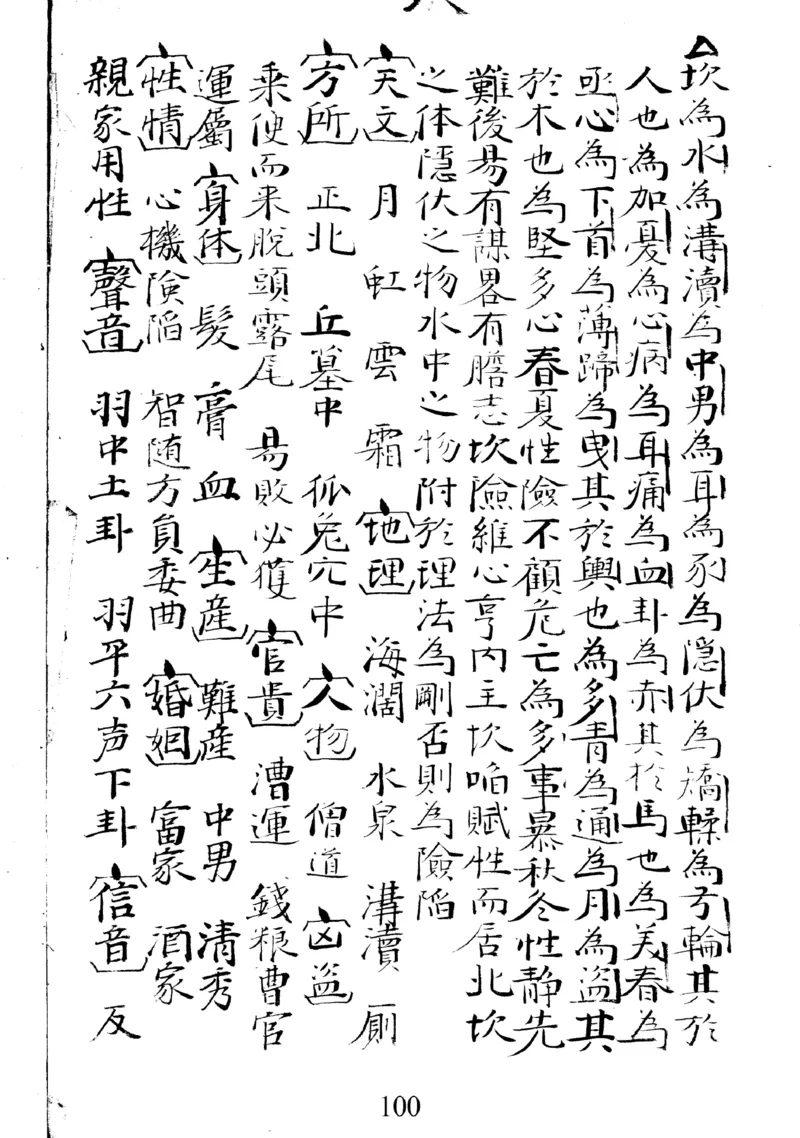 △坎為水為溝瀆為中男為耳為豕為隱伏為矯輮為弓輪其於
人也為加憂為心病為耳痛為血卦為赤其於馬也為美脊為
亟心為下首為薄蹄為曳其於輿也為多眚為通為月為盜其
於木也為堅多心春夏性險不顧危亡為多事暴秋冬性静先
難後易有謀畧有膽志坎險維心亨内主坎陷賦性而居北坎
之体隱伏之物水中之物附於理法為剛否則為險陷
天文 月 虹 雲 霜 地理 海濶 水泉 溝瀆 厠
方所 正北 丘墓中 狐兔穴中 人物 僧道 凶盗
乗便而来脱頭露尾 易敗必獲 官貴 漕運 錢粮曹官
運屬 身体 髮 膏 血 生産 難産 中男 清秀
性情 心機険陷 智随方負委曲 婚姻 富家 酒家
親家用性 聲音 羽中土卦 羽平六声下卦 信音 反
100